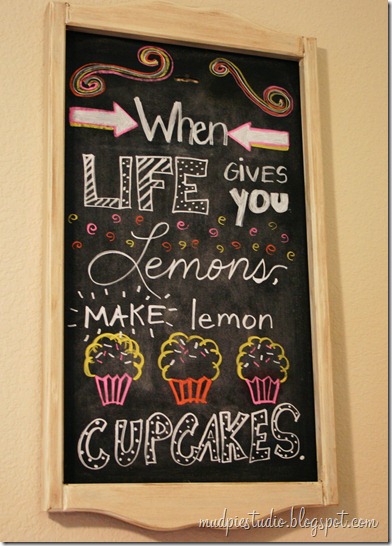 When
LIFE GIVES
YOU
Lemons,
MAKE lemon
CUPCAKES.
mudpiestudio.blogspot.com